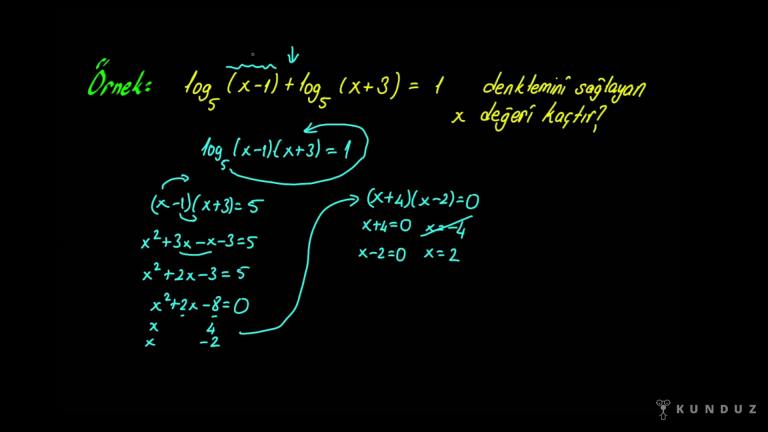 Örnek: log₅(x-1)+log₅(x+3)=1 denklemini sağlayan
x değeri kaçtır?
log₅(x-1)(x+3)=1
(x-1)(x+3)=5
x²+3x-x-3=5
x²+2x-3=5
x²+2x-8=0
x 4
x -2
(x+4)(x-2)=0
x+4=0 x=-4
x-2=0 x=2
KUNDUZ